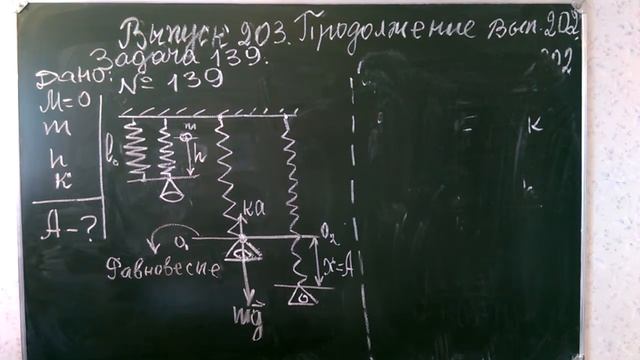 Выпуск 203. Продолжение вып. 202
Задача 139.
202
Дано:
№ 139
M=0
m
h
к
A-?
l₀
m
h
ка
O₁
O₂
Равновесие
x=A
mg⃗
=
к